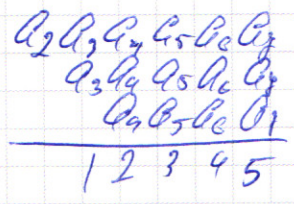 a₂a₃a₄a₅a₆a₇
a₃a₄a₅a₆a₇
a₄a₅a₆a₇
1 2 3 4 5